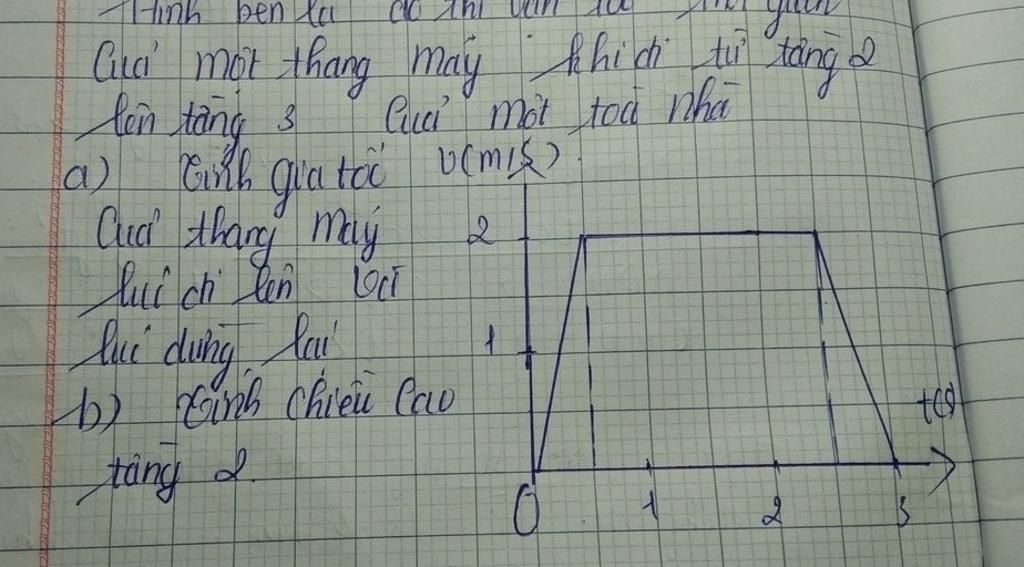 Hình bên là đồ thị vận tốc thời gian
Của một thang máy khi đi từ tầng 2
lên tầng 3 Của một toà nhà
a) Tính gia tốc
Của thang máy
lúc đi lên Và
lúc dừng lại
b) Tính Chiều Cao
tầng 2.
v(m/s)
2
1
t(s)
0 1 2 3